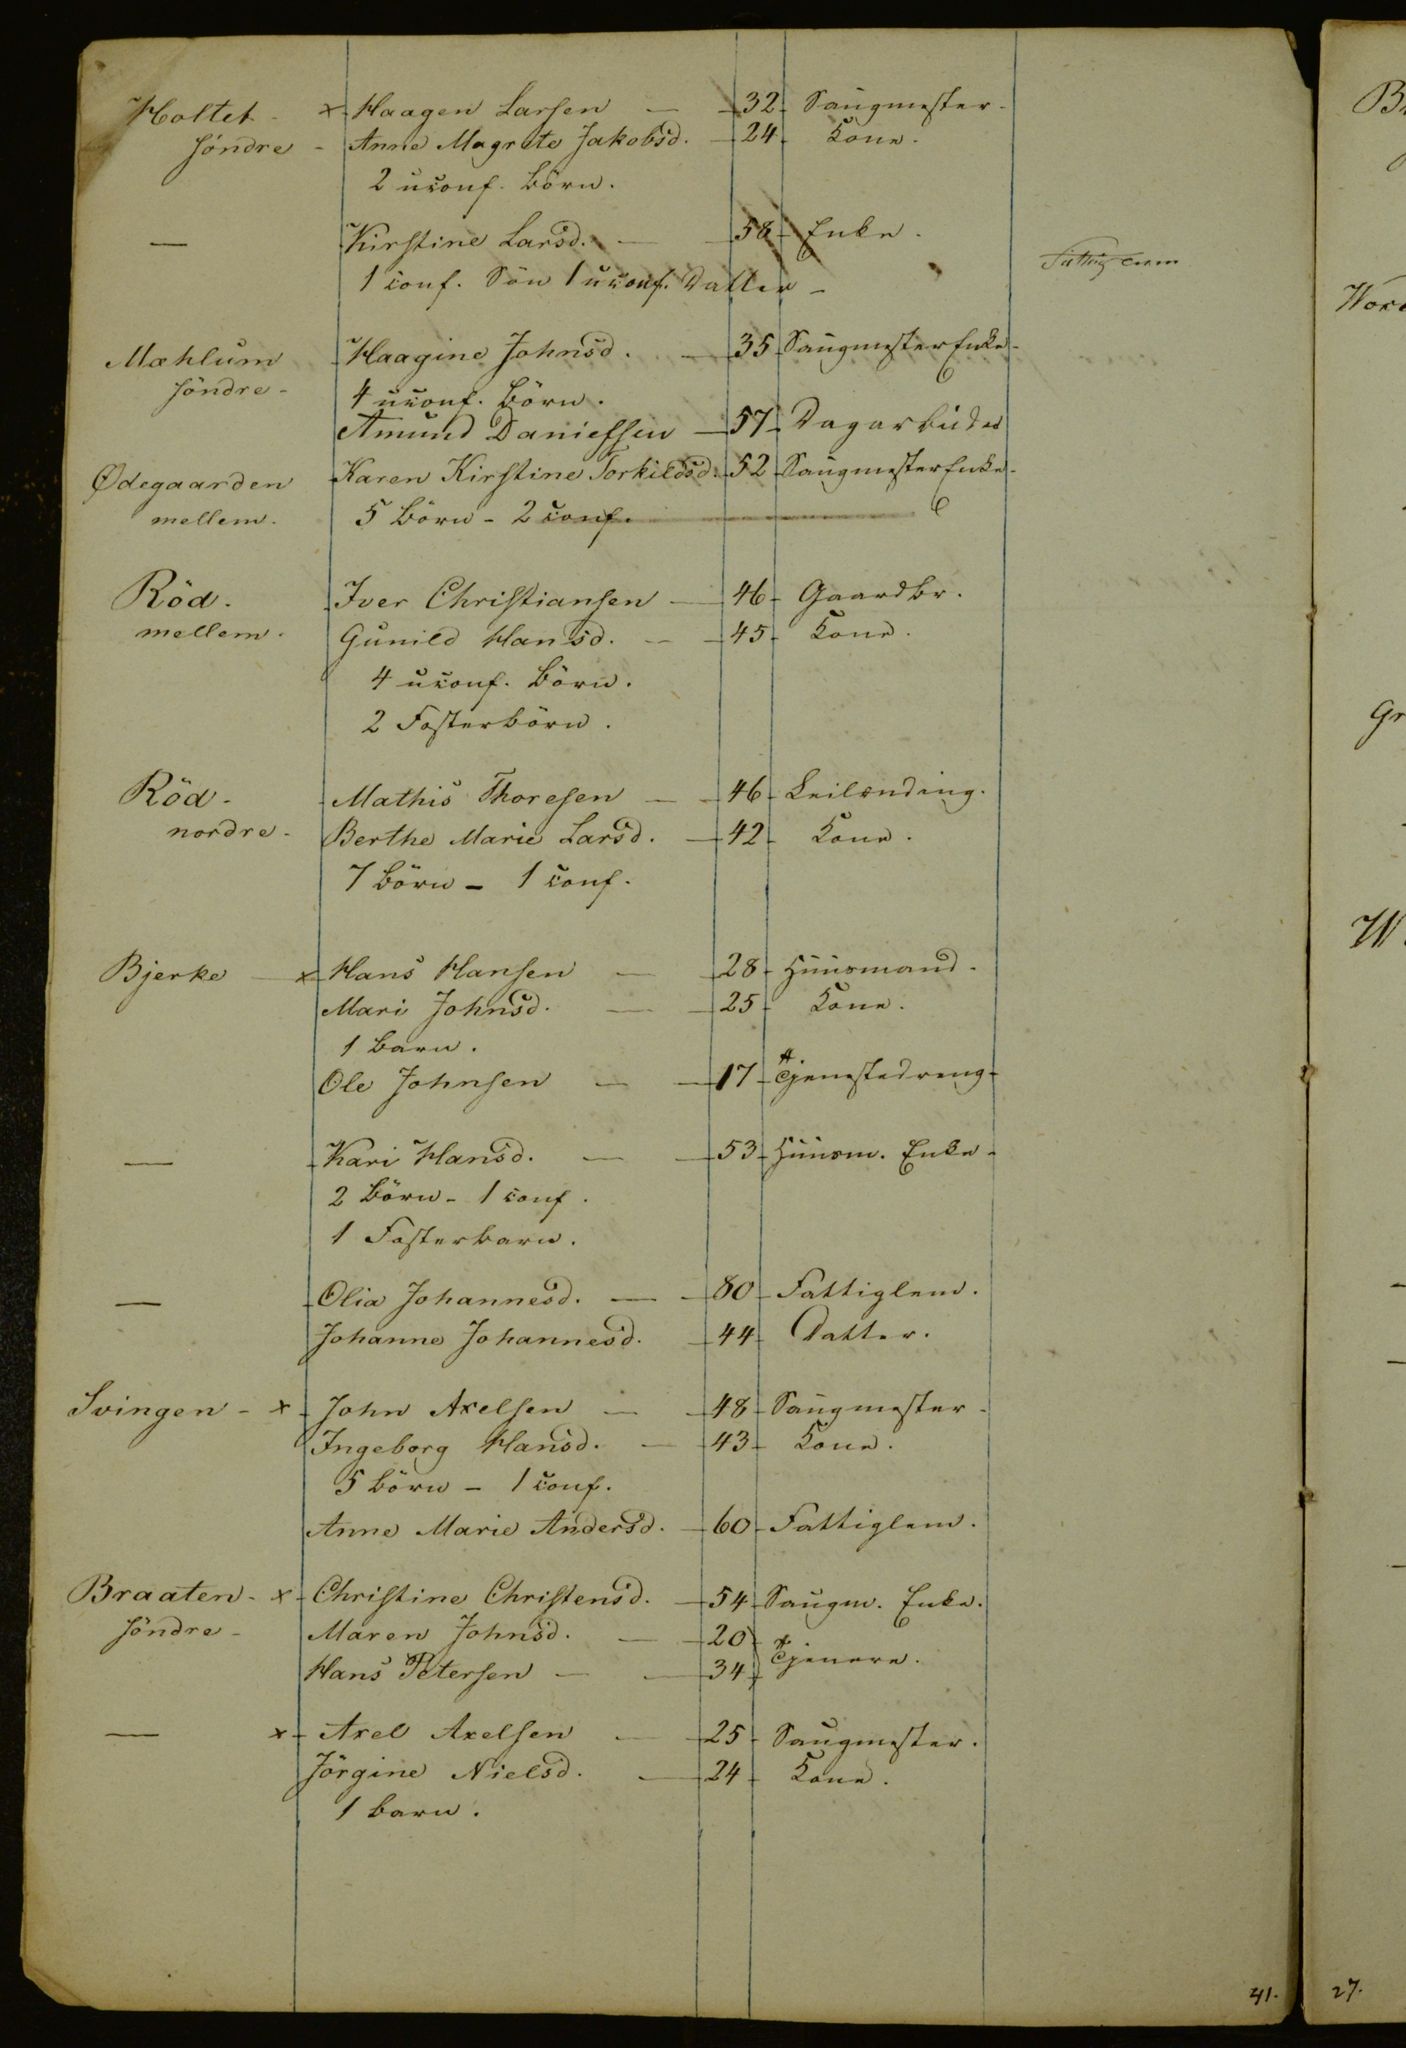 Holtet - x Haagen Larsen — 32 - Saugmester -
söndre - Anne Magrete Jakobsd. - 24 - Kone.
2 uconf. Börn.
— Kirstine Larsd. — 58 - Enke.
1 conf. Sön 1 uconf. Datter -
Mæhlum Haagine Johnsd. — 35 - Saugmester Enke -
söndre - 4 uconf. Börn.
Amund Danielsen — 57 - Dagarbeider
Ødegaarden Karen Kirstine Torkildsd. - 52 - Saugmester Enke -
mellem. 5 Börn - 2 conf.
Röd. Iver Christiansen — 46 - Gaardbr.
mellem. Gunild Hansd. — 45 - Kone.
4 uconf. Börn.
2 Fosterbörn.
Röd - Mathis Thoresen — 46 - Leilænding.
nordre - Berthe Marie Larsd. — 42 - Kone.
7 Börn - 1 conf.
Bjerke — x Hans Hansen — 28 - Huusmand.
Mari Johnsd. — 25 - Kone.
1 Barn.
Ole Johnsen — 17 - Tjenestedreng -
— Kari Hansd. — 53 - Huusm. Enke -
2 Börn - 1 conf.
1 Fosterbarn.
— Olia Johannesd. — 80 - Fattiglem.
Johanne Johannesd. - 44 - Datter.
Svingen - x - John Axelsen — 48 - Saugmester -
Ingeborg Hansd. — 43 - Kone.
5 Börn - 1 conf.
Anne Marie Andersd. - 60 - Fattiglem.
Braaten - x - Christine Christensd. - 54 - Saugm. Enke.
söndre - Maren Johnsd. — 20
Hans Petersen — 34 Tjenere.
— x - Axel Axelsen — 25 - Saugmester.
Jörgine Nielsd. — 24 - Kone.
1 Barn.
41.
27.